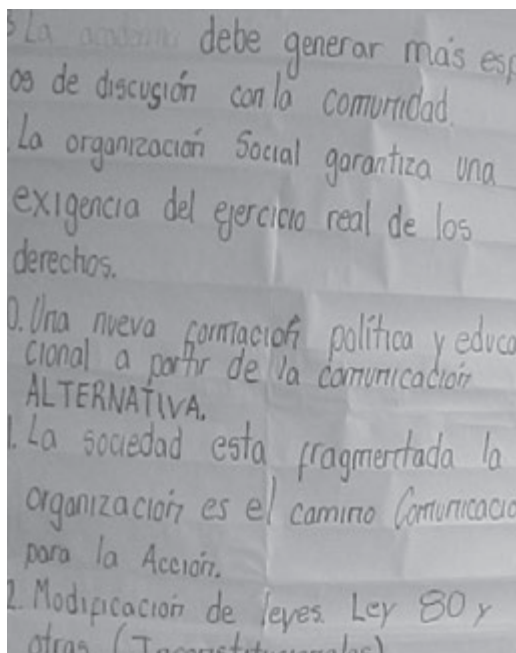 La academia debe generar más esp
os de discusión con la comunidad.
La organización Social garantiza una
exigencia del ejercicio real de los
derechos.
0. Una nueva formación política y educa
cional a partir de la comunicación
ALTERNATIVA.
1. La sociedad esta fragmentada la
organización es el camino Comunicació
para la Acción.
2. Modificación de leyes. Ley 80 y
otras (Inconstitucionales)